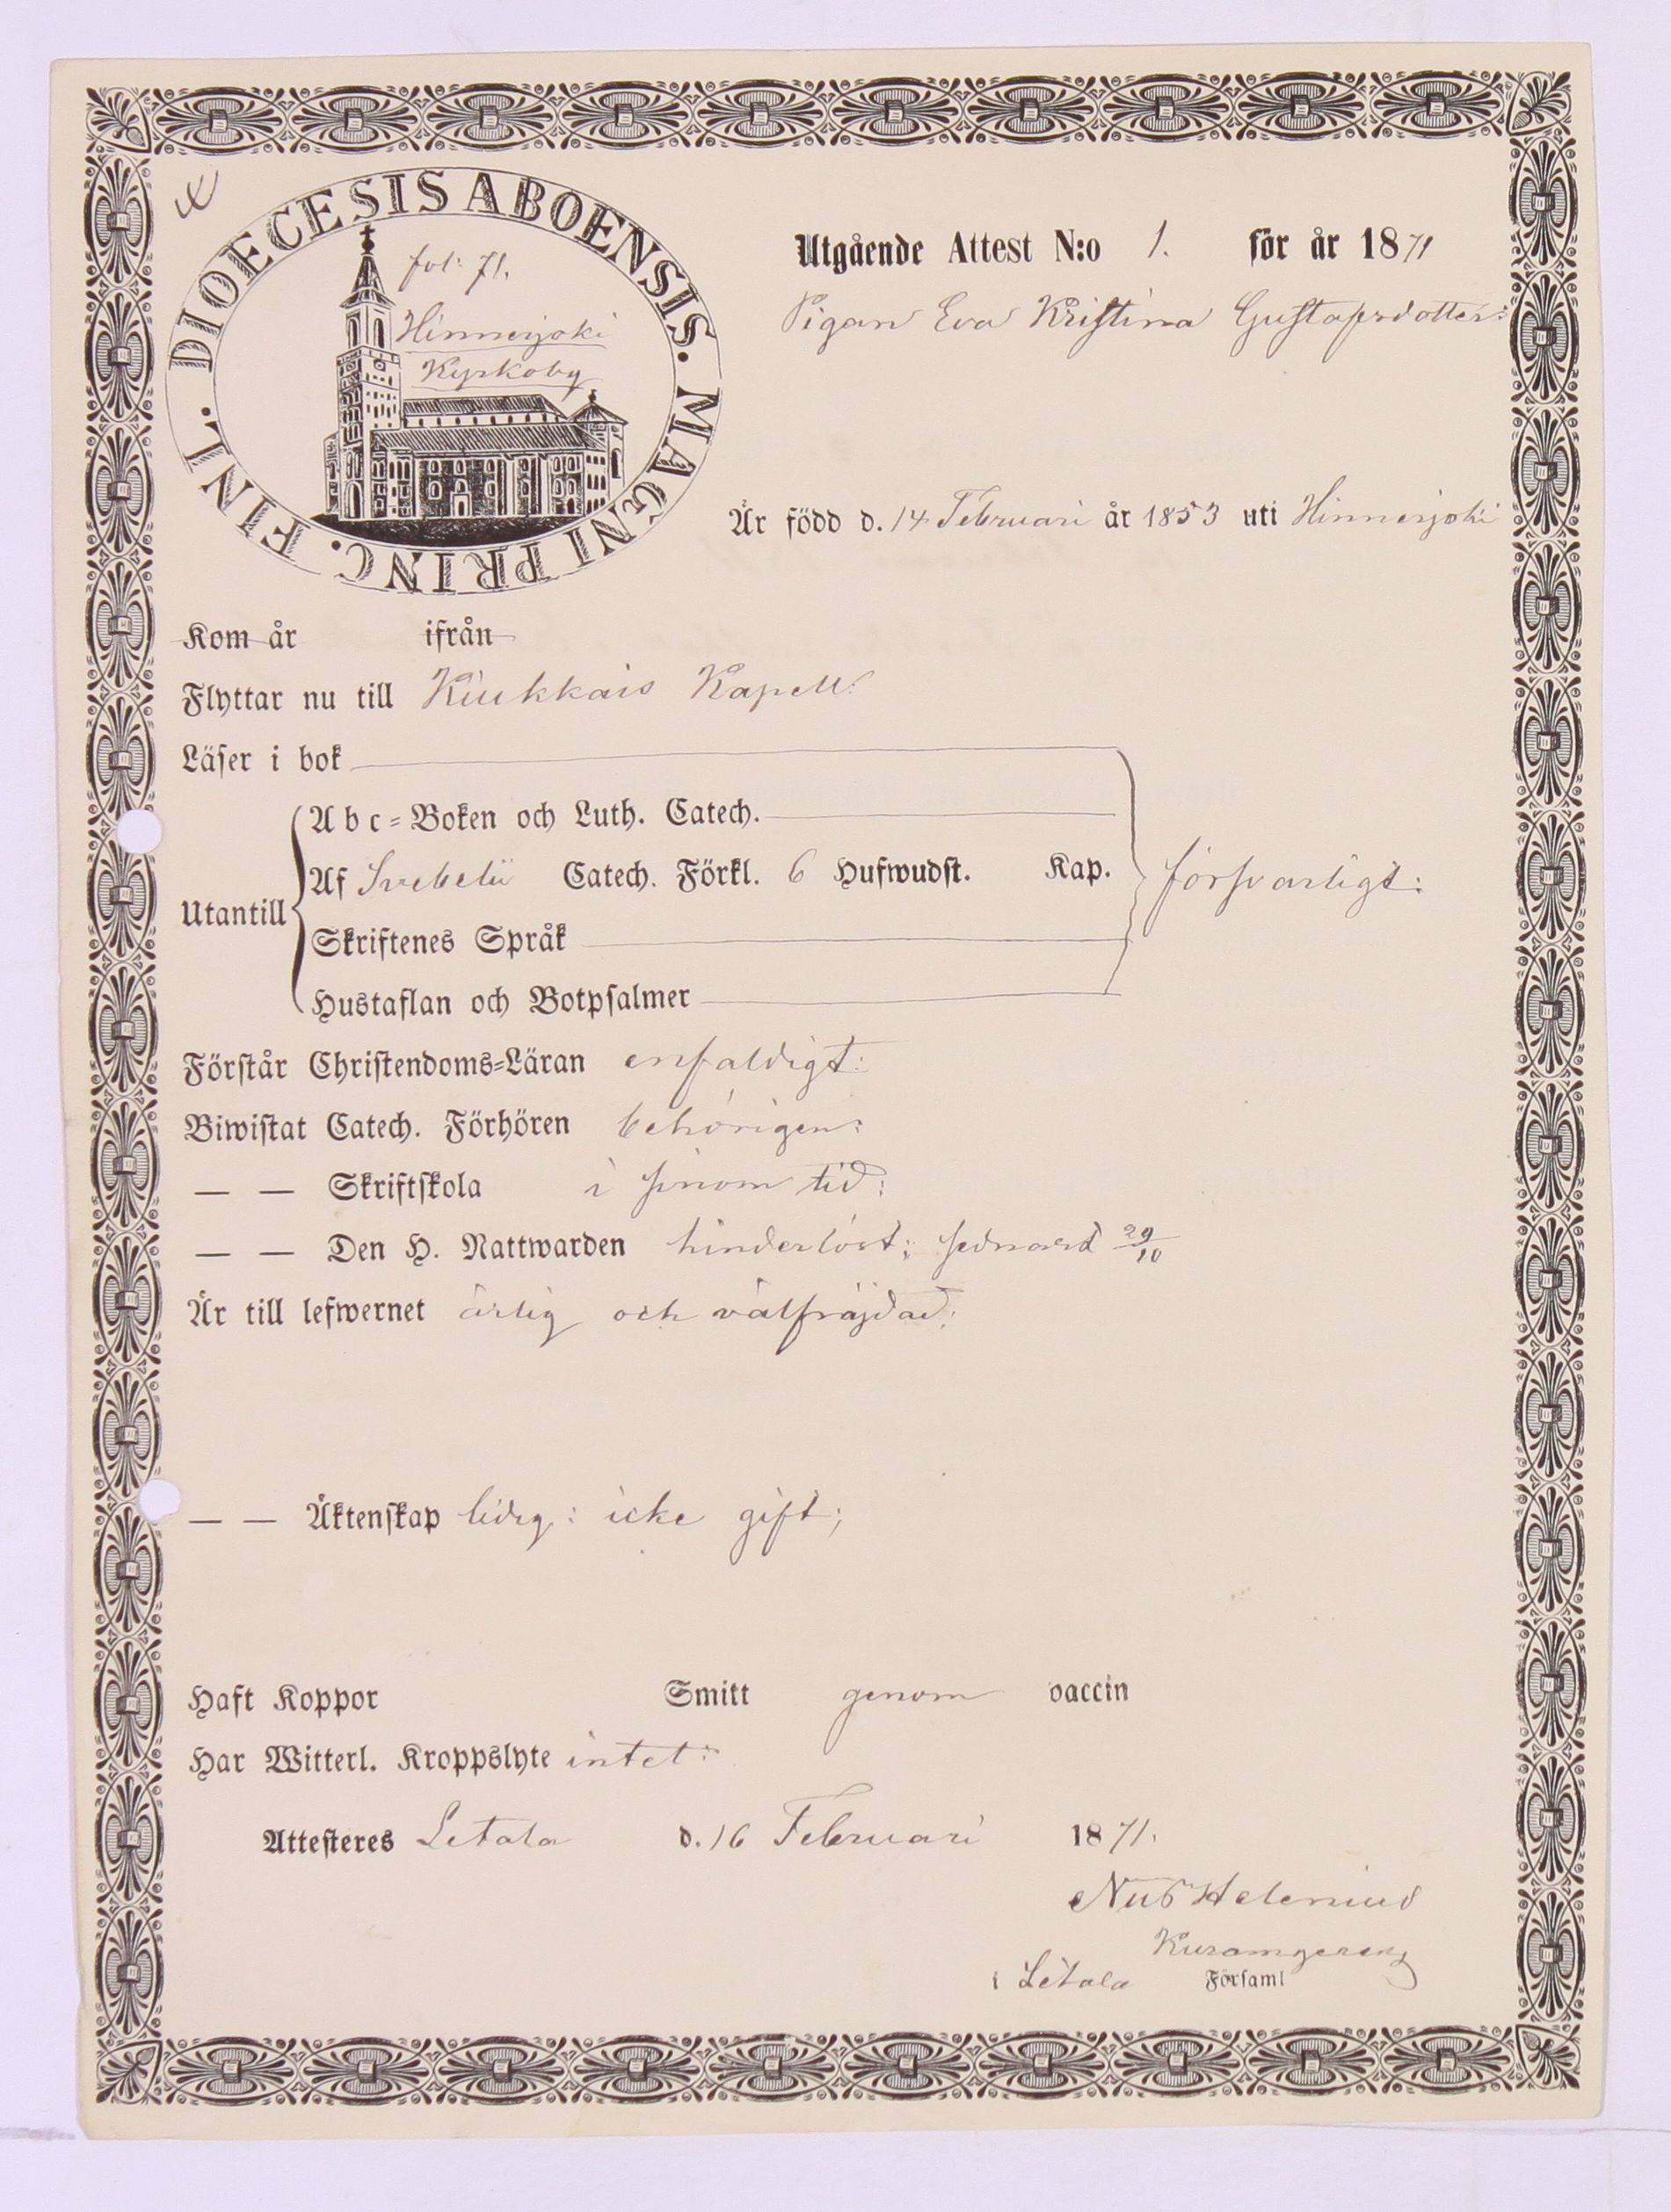 DIOECESIS ABOENSIS. MAGNI PRINC. FINL.
fol: 71.
Hinnerjoki
Kyrkoby
Utgående Attest N:o 1. för år 1871
Pigan Eva Kristina Gustafsdotter:
Är född d. 14 Februari år 1853 uti Hinnerjoki
Kom år ifrån
Flyttar nu till Kiukkais Kapell:
Läser i bok
Utantill
Abc=Boken och Luth. Catech.
Af Svebelii Catech. Förkl. 6 Hufwudst. Kap.
försvarligt:
Skriftenes Språk
Hustaflan och Botpsalmer
Förstår Christendoms=Läran enfaldigt:
Biwistat Catech. Förhören behörigen:
— — Skriftskola i sinom tid:
— — Den H. Nattwarden hinderlöst; sednast 29/10
Är till lefwernet ärlig och välfräjdad;
— — Äktenskap ledig: icke gift;
Haft Koppor Smitt genom vaccin
Har Witterl. Kroppslyte intet:
Attesteres Letala d. 16 Februari 1871.
Nils Helenius
i Letala Församl